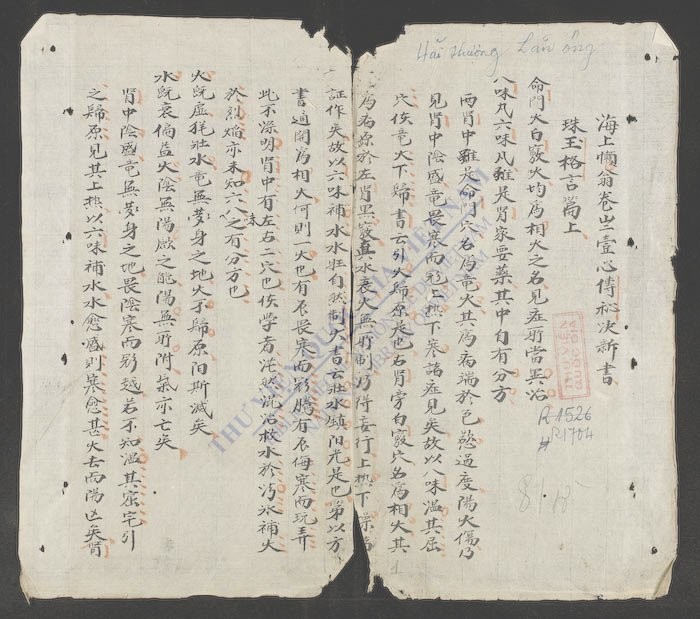 Hải Thượng Lãn Ông
海上懶翁卷之壹心傳秘次新書
珠玉格言篇上
命門火白竅火均爲相火之名見症所當異治
八味丸六味凡雖是腎家要藥其中自有分方
兩腎中雖是命門穴右爲竜火其爲病端於色慾過度陽火傷乃
見腎中陰盛竜畏寒而形上熱下寒諸症見矣故以八味溫其屈
穴俟竜火下歸書云引火歸原是也右腎旁白竅穴名爲相火其
爲病源於左腎黑竅真水衰火無所制乃得妄行上熱下
証作矣故以六味補水水旺自然制火書云壯水鎮阳光是也第以方
書通闗爲相火何則一火也有辰畏寒而形騰有辰侮寒而玩弄
此不深明腎中有左右二穴也俟學者茫然混治救水於淸水補火
於烈焰亦未知六八味之有分方也
火既虛徒壯水竜無夢身之地火不歸原阳斯滅矣
水既衰偏益火陰無陽歛之能陽無所附氣亦亡矣
腎中陰盛竜無夢身之地畏陰寒而形越若不知溫其窟宅引
之歸原見其上热以六味補水水愈盛則寒愈甚火去而陽亡矣腎
R.1526
R1704
THƯ VIỆN QUỐC GIA VIỆT NAM